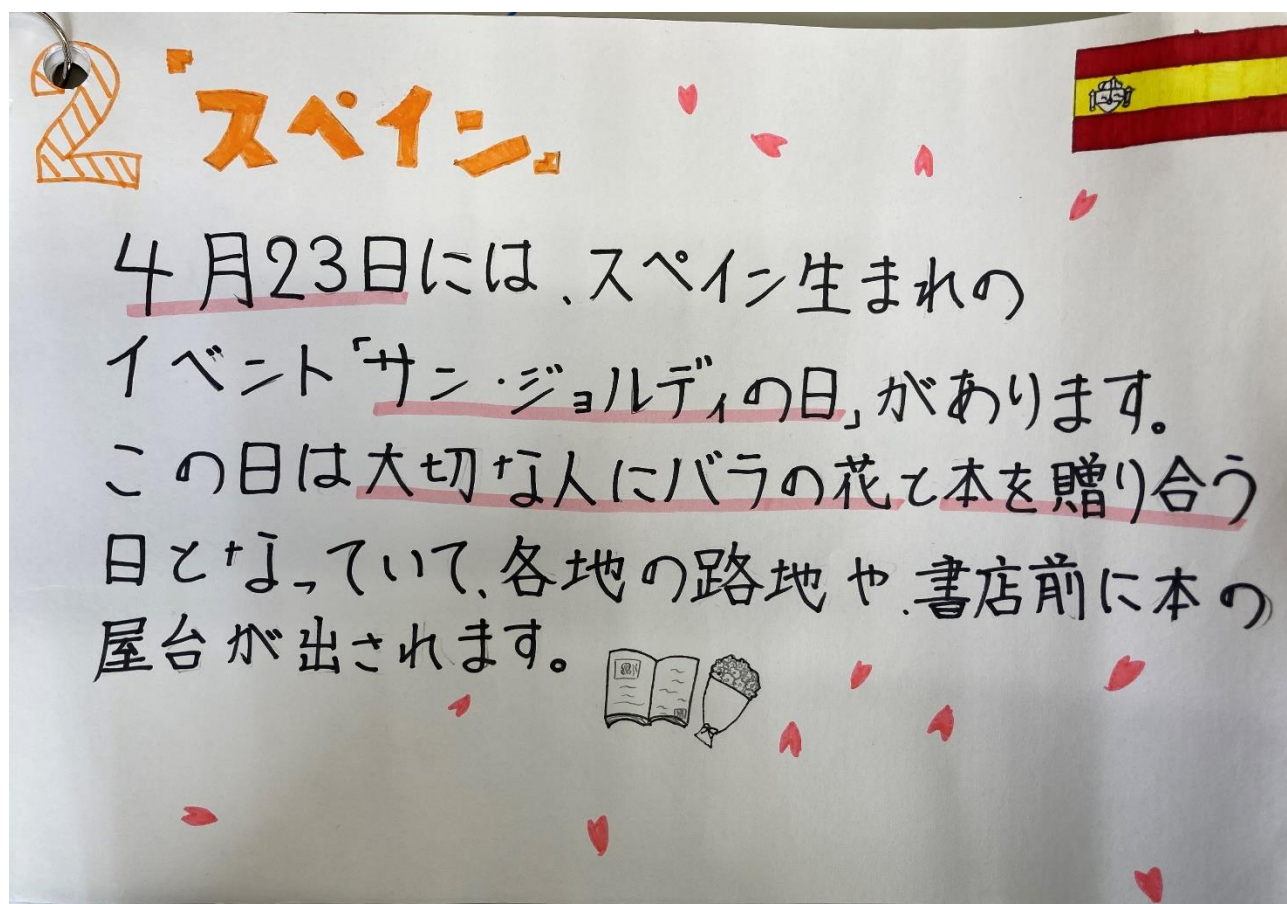 2『スペイン』
4月23日には、スペイン生まれの
イベント「サン・ジョルディの日」があります。
この日は大切な人にバラの花と本を贈り合う
日となっていて、各地の路地や、書店前に本の
屋台が出されます。